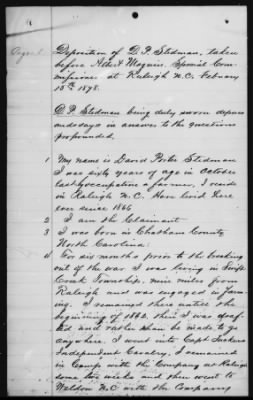 Deposition of D. P. Stedman, taken
before Albert Magruin, Special Com-
missioner at Raleigh N.C. February
15th 1878.
D. P. Stedman being duly sworn deposes
and says in answer to the questions
propounded.
1 My name is David Porter Stedman
I was sixty years of age in October
last, occupation a farmer, I reside
in Raleigh N.C. Have lived here
ever since 1865
2 I am the Claimant
3 I was born in Chatham County
North Carolina.
4 For six months prior to the breaking
out of the war I was living in Swift
Creek Township, nine miles from
Raleigh and was engaged in farm-
ing. I remained there until the
beginning of 1862. then I was draft-
ed and rather than be made to go
anywhere. I went into Capt Tuckers
Independent Cavalry, I remained
in Camp with the Company at Raleigh
some two weeks and then went to
Weldon N.C with the Company